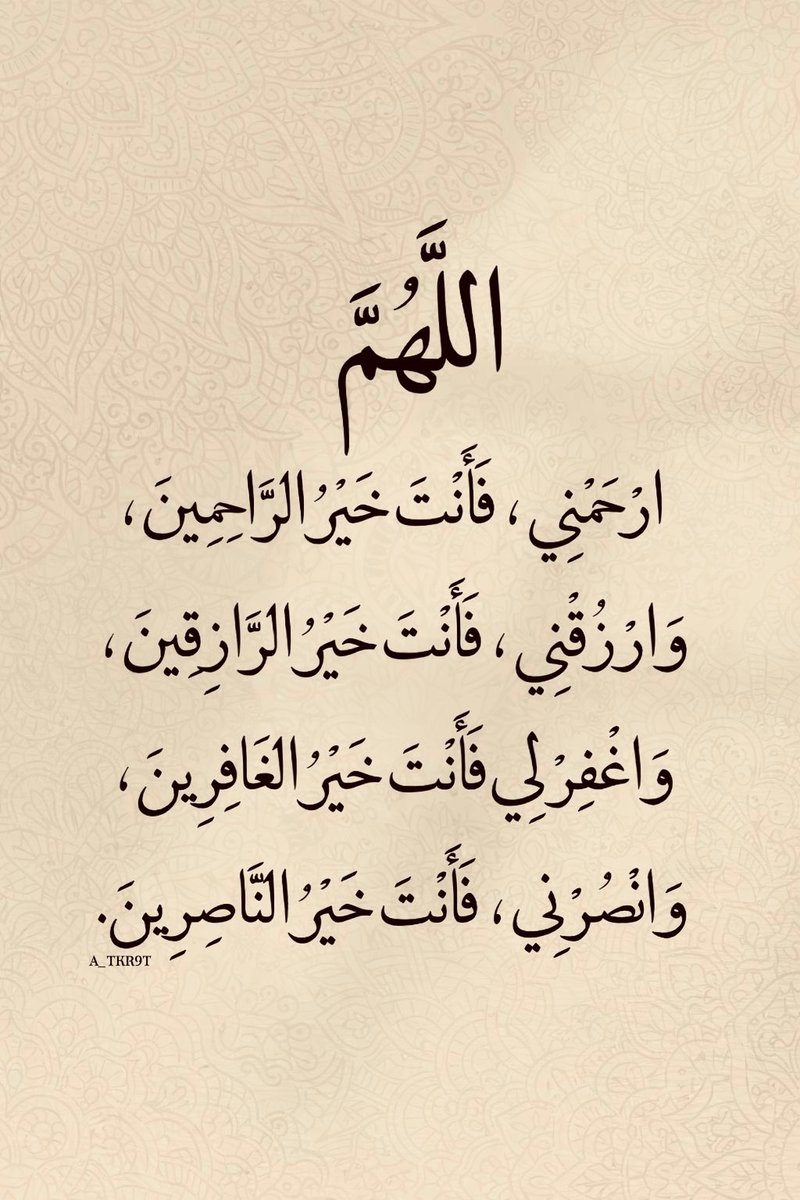 اللَّهُمَّ
ارْحَمْنِي ، فَأَنْتَ خَيْرُ الرَّاحِمِينَ ،
وَارْزُقْنِي ، فَأَنْتَ خَيْرُ الرَّازِقِينَ ،
وَاغْفِرْ لِي فَأَنْتَ خَيْرُ الغَافِرِينَ ،
وَانْصُرْنِي ، فَأَنْتَ خَيْرُ النَّاصِرِينَ.
A_TKR9T